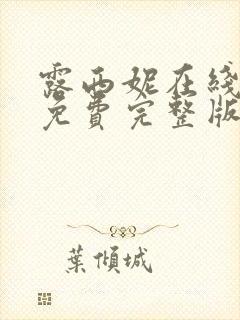 露西妮在线
免費完整版
葉傾城